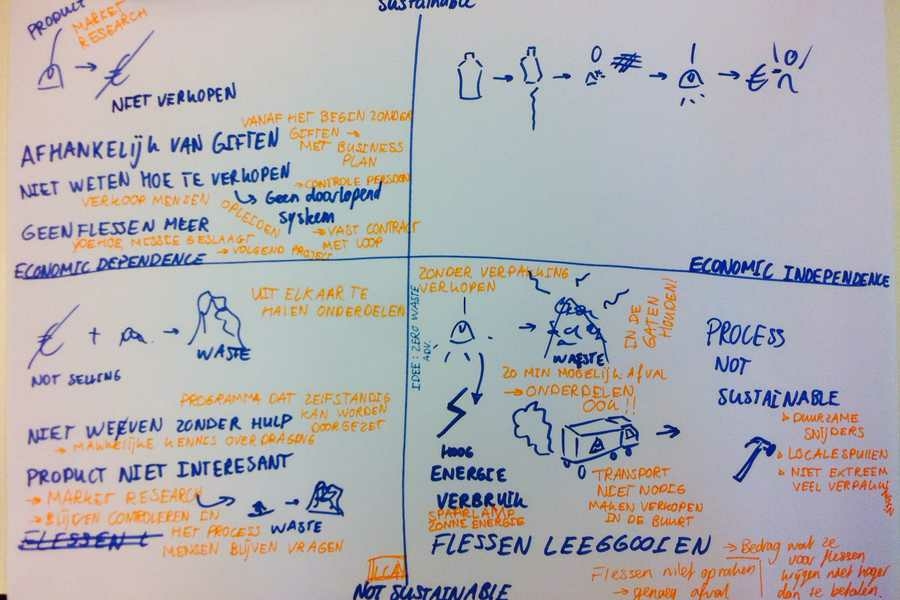 Sustainable
PRODUCT
MARKET
RESEARCH
€
NIET VERKOPEN
VANAF HET BEGIN ZONDER
GIFTEN →
MET BUSINESS
PLAN
AFHANKELIJK VAN GIFTEN
NIET WETEN HOE TE VERKOPEN
→ CONTROLE PERSOON
VERKOOP MENSEN OPLEIDEN
Geen doorlopend
systeem
GEEN FLESSEN MEER
→ VAST CONTRACT
MET LOOP
MISSIE GESLAAGT
→ VOLGEND PROJECT
ECONOMIC DEPENDENCE
€
ECONOMIC INDEPENDENCE
UIT ELKAAR TE
HALEN ONDERDELEN
€ +
WASTE
NOT SELLING
PROGRAMMA DAT ZELFSTANDIG
KAN WORDEN
DOORGEZET
NIET WERVEN ZONDER HULP
→ MAKKELIJKE KENNIS OVERDRAGING
PRODUCT NIET INTERESANT
→ MARKET RESEARCH
→ BLIJVEN CONTROLEREN IN
HET PROCESS
WASTE
FLESSEN
MENSEN BLIJVEN VRAGEN
LCA
NOT SUSTAINABLE
ZONDER VERPAKKING
VERKOPEN
IDEE: ZERO WASTE
ADV.
IN DE
GATEN
HOUDEN!
WASTE
ZO MIN MOGELIJK AFVAL
→ ONDERDELEN
OOK!!
HOOG
ENERGIE
VERBRUIK
SPAARLAMP
ZONNE ENERGIE
TRANSPORT
NIET NODIG
MAKEN VERKOPEN
IN DE BUURT
PROCESS
NOT
SUSTAINABLE
DUURZAME
SNIJDERS
LOCALE SPULLEN
NIET EXTREEM
VEEL
FLESSEN LEEGGOOIEN
→ Bedrag wat ze
voor flessen
krijgen niet hoger
dan te betalen.
Flessen niet opmaken
→ genoeg afval